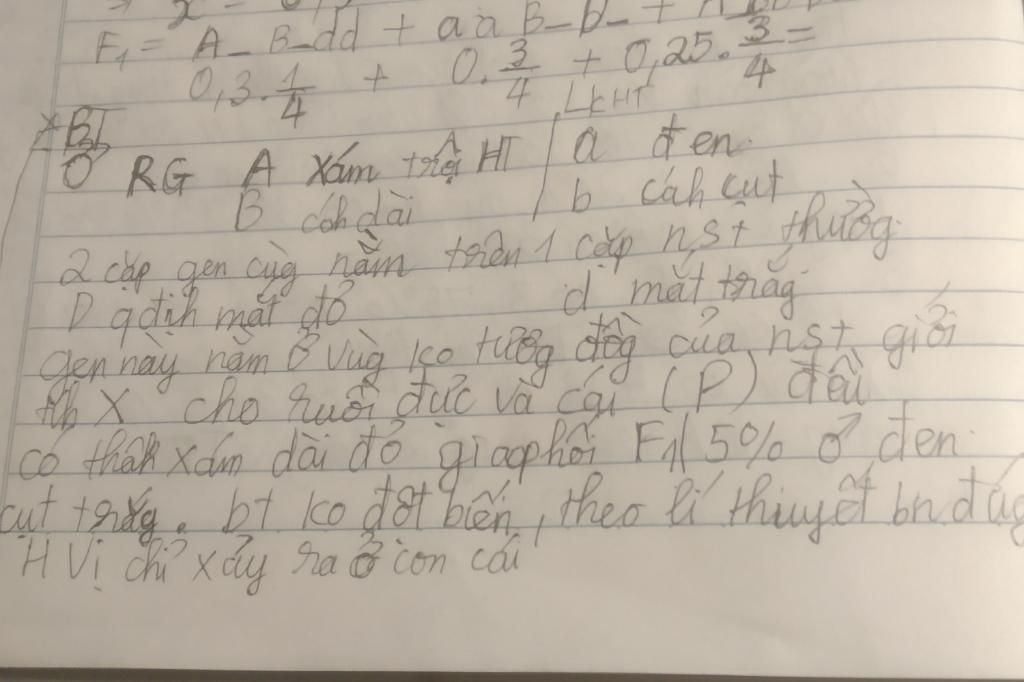 F₁ = A_ B_ dd + aa B_ D_ +
0,3 . 1/4 + 0 . 3/4 + 0,25 . 3/4 =
LK HT
+ BT
Ở RG A xám trội HT / a đen
B cáh dài / b cáh cụt
2 cặp gen cùg nằm trên 1 cặp nst thườg
D qđịh mắt đỏ d mắt trắg
gen này nằm ở vùg ko tươg đồg của nst giới
X cho ruồi đực và cái (P) đều
có thân xám dài đỏ giao phối F₁ 5% ♂ đen
cụt trắg. bt ko đột biến, theo lí thuyết bn đúg
H Vị chỉ xảy ra ở con cái